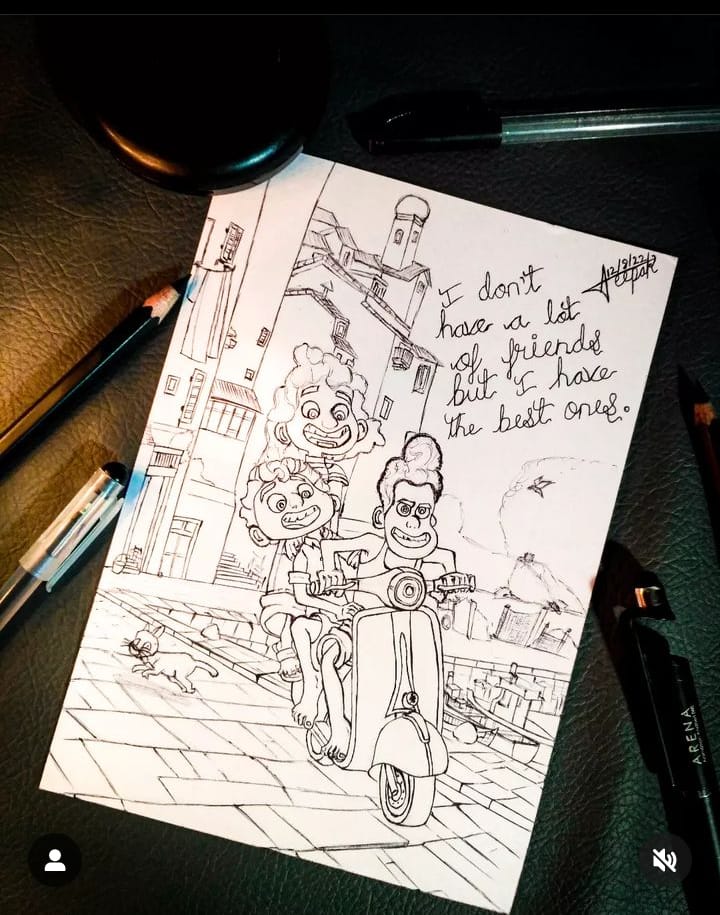 I don't
have a lot
of friends
but I have
the best ones.
12/8/22
Deepak
ARENA